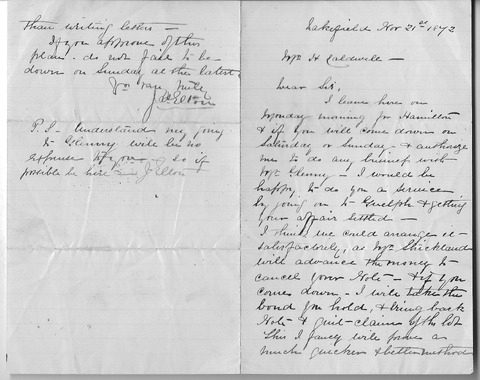 Lakefield Nov 21st 1872
Mr H Caldwell -
Dear Sir,
I leave here on
Monday morning for Hamilton
& if you will come down on
Saturday or Sunday - & authorize
me to do any business with
Mr Glenny - I would be
happy to do you a service
by going on to Guelph & getting
your affair settled -
I think we could arrange it
satisfactorily, as Mr Strickland
will advance the money to
cancel your Note - & if you
come down - I will take the
bond you hold, & bring back
Note & quit-claim of the lot
This I fancy will prove a
much quicker & better method
than writing letters -
If you approve of this
plan - do not fail to be
down on Sunday at the latest
Yrs very truly
P.S. - Understand my going
to Glenny will be no
expense to you - so if
possible be here